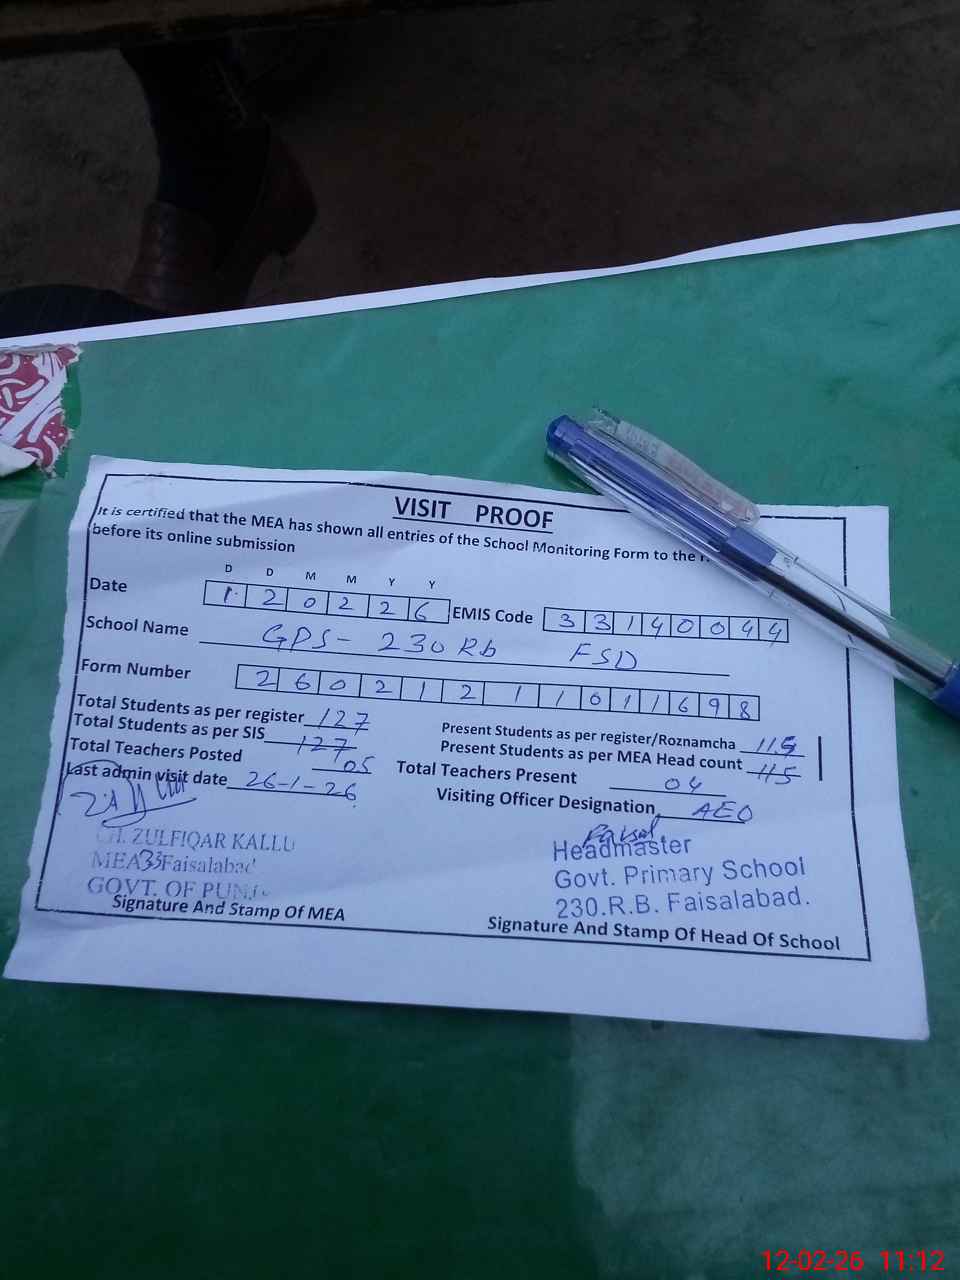 VISIT PROOF
It is certified that the MEA has shown all entries of the School Monitoring Form to the
before its online submission
D D M M Y Y
Date 1 2 0 2 2 6 EMIS Code 3 3 1 4 0 0 4 4
School Name GPS- 230 Rb FSD
Form Number 2 6 0 2 1 2 1 1 0 1 1 6 9 8
Total Students as per register 127 Present Students as per register/Roznamcha 115
Total Students as per SIS 127 Present Students as per MEA Head count 115
Total Teachers Posted 05 Total Teachers Present 04
Last admin visit date 26-1-26 Visiting Officer Designation AEO
CH. ZULFIQAR KALLU
MEA 33 Faisalabad
GOVT. OF
Signature And Stamp Of MEA
Headmaster
Govt. Primary School
230.R.B. Faisalabad.
Signature And Stamp Of Head Of School
12-02-26 11:12